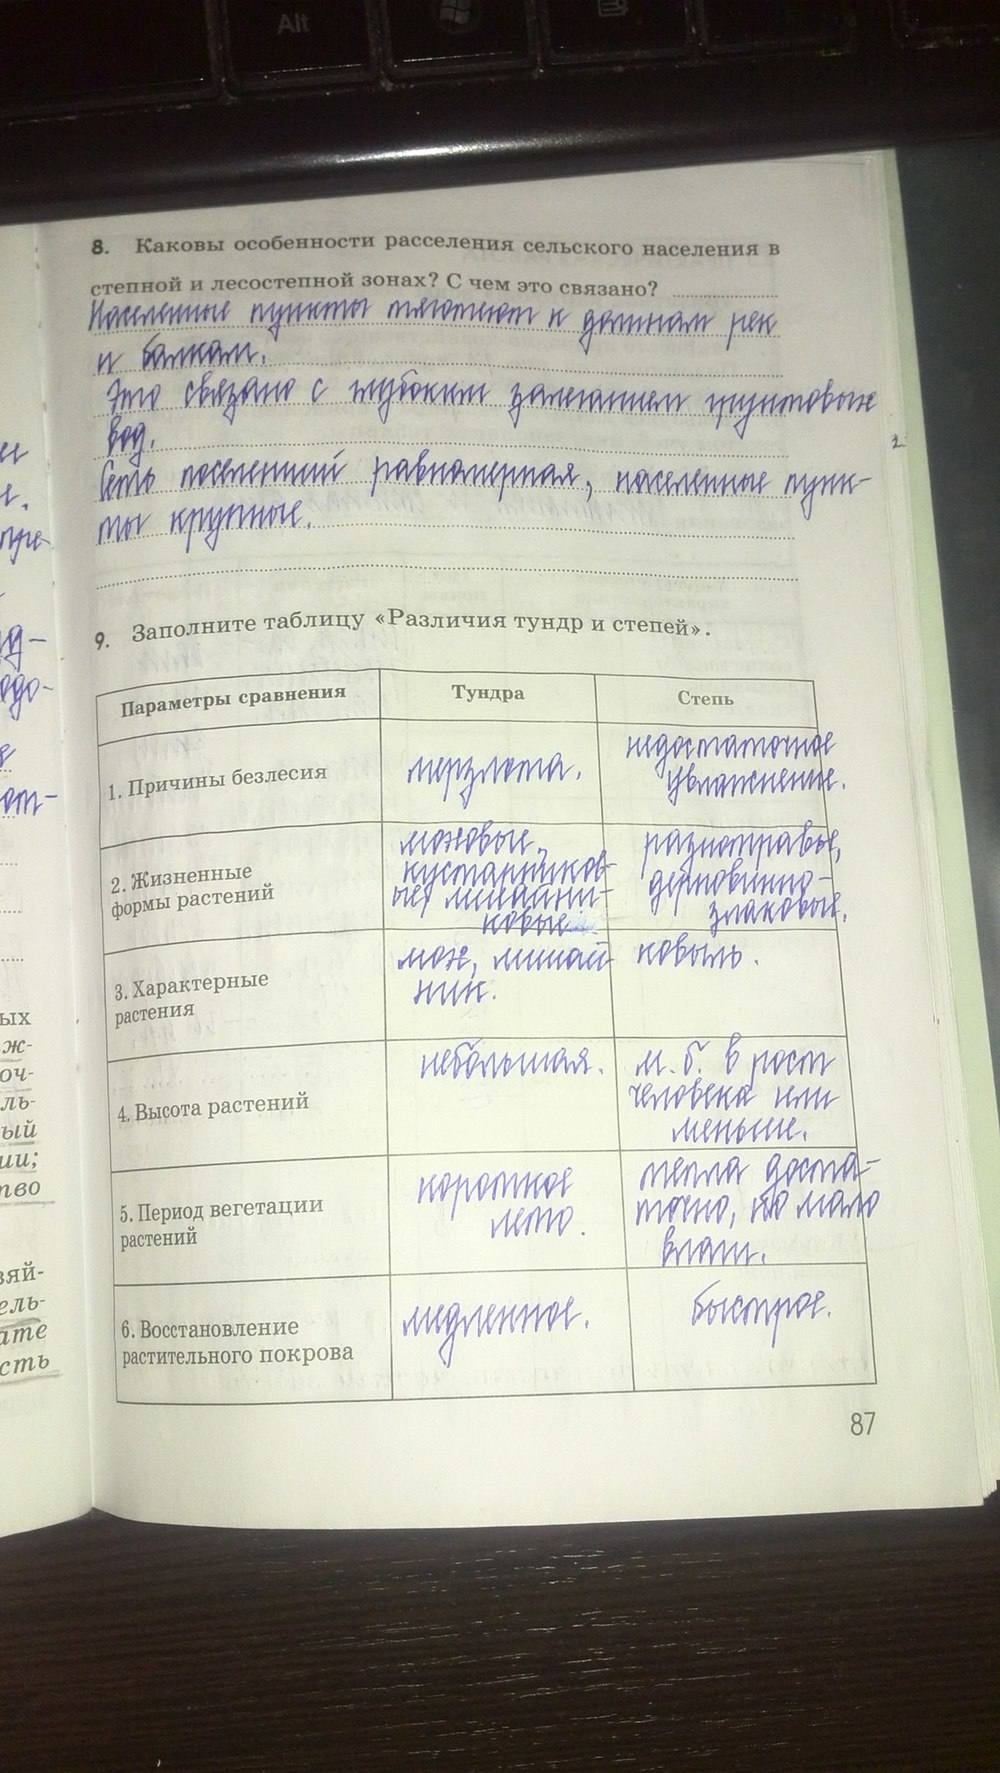 Alt
8. Каковы особенности расселения сельского населения в
степной и лесостепной зонах? С чем это связано?
Населенные пункты тяготеют к долинам рек
и балкам.
Это связано с глубоким залеганием грунтовых
вод.
Сеть поселений равномерная, населенные пунк-
ты крупные.
9. Заполните таблицу «Различия тундр и степей».
Параметры сравнения Тундра Степь
1. Причины безлесия мерзлота. недостаточное
увлажнение.
2. Жизненные
формы растений
моховые,
кустарников-
ые, лишайни-
ковые
разнотравье,
дерновинно-
злаковые.
3. Характерные
растения
мох, лишай-
ник.
ковыль.
4. Высота растений
небольшая.
м. б. в рост
человека или
меньше.
5. Период вегетации
растений
короткое
лето.
тепла доста-
точно, но мало
влаги.
6. Восстановление
растительного покрова
медленное.
быстрое.
87
ых
ж-
оч-
ль-
ый
ии;
тво
зяй-
ель-
ате
сть